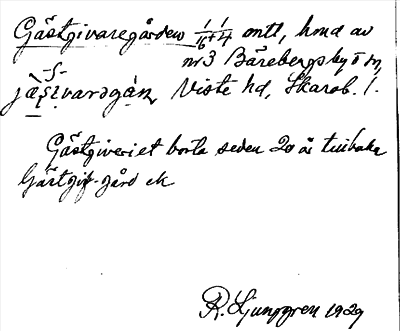 Gästgivaregården 1/6+1/4 mtl, hmd av
nr3 Bärebergs by o sn,
jäsivarəgån, Viste hd, Skarab. l.
Gästgiveriet borta sedan 20 år tillbaka
Gästgif-gård ek
R. Ljunggren 1929